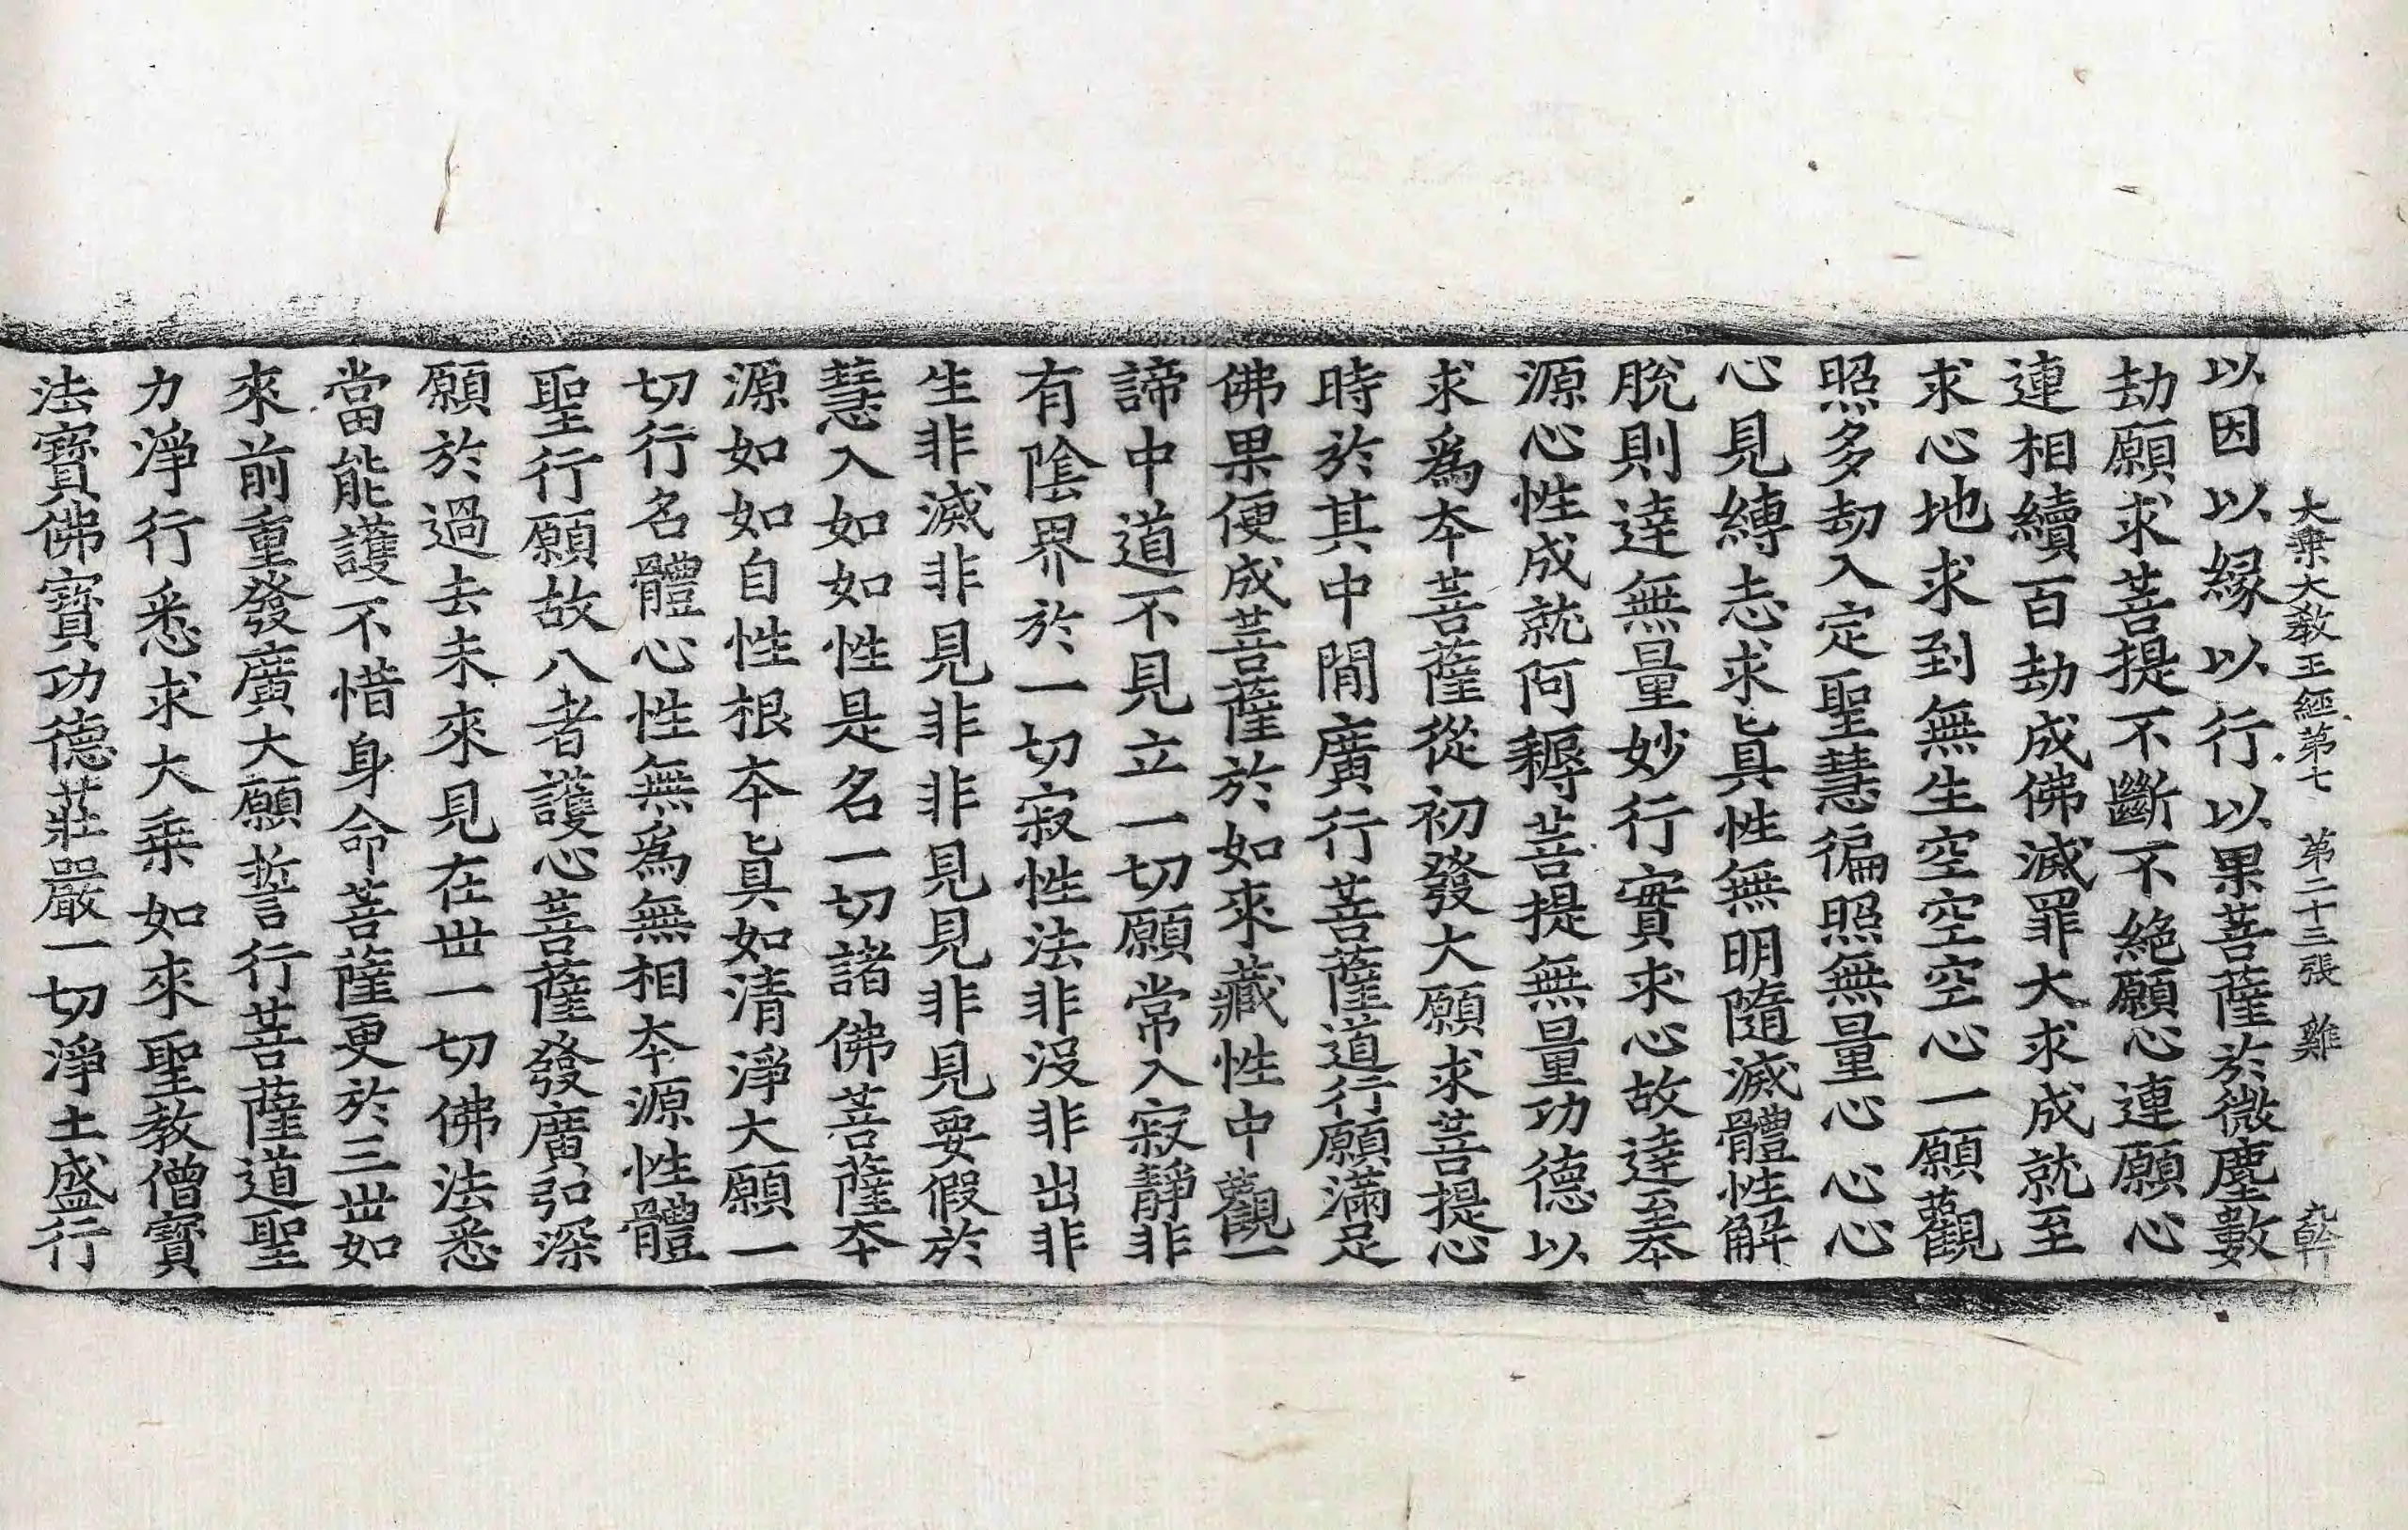 大乗大教王經第七 第二十三張 雞
以因以緣以行以果菩薩於微塵數
劫願求菩提不斷不絶願心連願心
連相續百劫成佛滅罪大求成就至
求心地求到無生空空空心一願觀
照多劫入定聖慧徧照無量心心心
心見縛志求眞性無明隨滅體性解
脫則達無量妙行實求心故達至本
源心性成就阿耨菩提無量功德以
求爲本菩薩從初發大願求菩提心
時於其中閒廣行菩薩道行願滿足
佛果便成菩薩於如來藏性中觀一
諦中道不見立一切願常入寂靜非
有陰界於一切寂性法非沒非出非
生非滅非見非非見見非見要假於
慧入如如性是名一切諸佛菩薩本
源如如自性根本眞如清淨大願一
切行名體心性無爲無相本源性體
聖行願故八者護心菩薩發廣弘深
願於過去未來見在世一切佛法悉
當能護不惜身命菩薩更於三世如
來前重發廣大願誓行菩薩道聖
力淨行悉求大乗如來聖教僧寶
法寶佛寶功德莊嚴一切淨土盛行